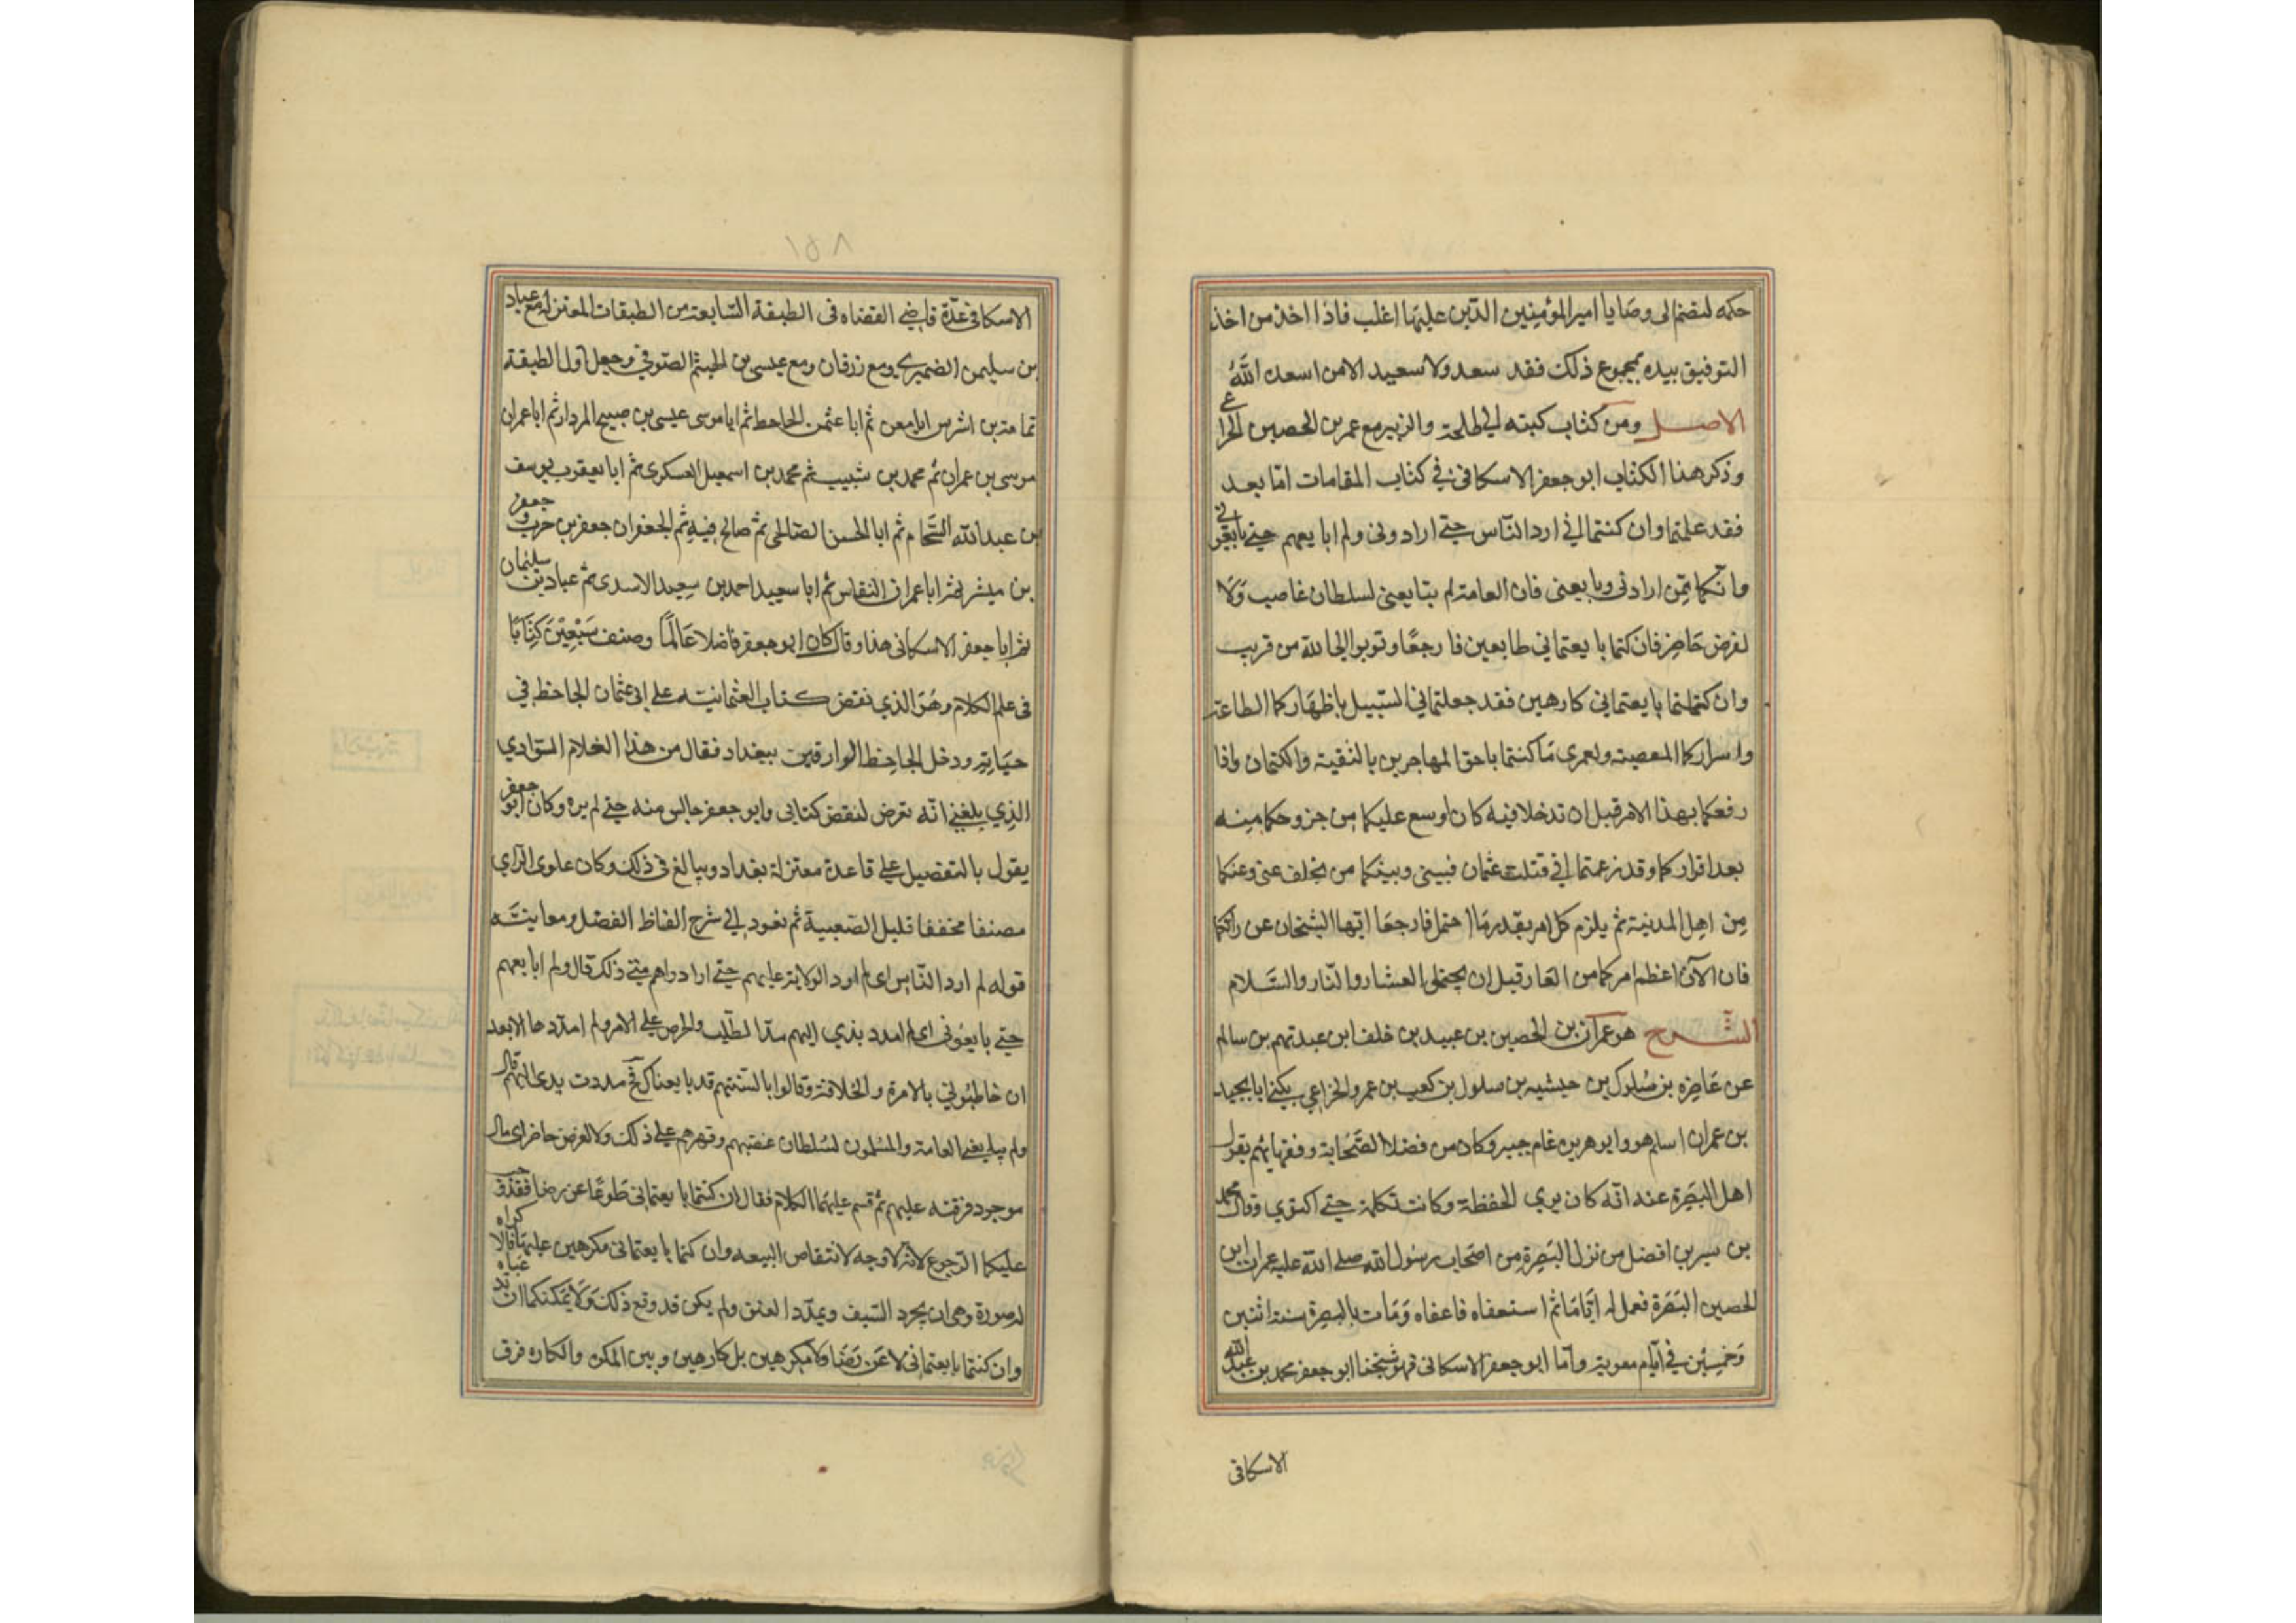 حكمه لتضم الى وصايا امير المؤمنين الذين عليهما اغلب فاذا اخذ من اخذ
التوفيق بيده بمجموع ذلك فقد سعد ولا سعيد الا من اسعده اللّٰه
الاصل ومن كتاب كتبه الى طلحة والزبير مع عمر بن الحصين الخزاعي
وذكر هذا الكتاب ابو جعفر الاسكافي في كتاب المقامات اما بعد
فقد علمتما وان كنتما اني ارد الناس حتى ارادوني ولم ابايعهم حتى بايعوني
وانكما ممن ارادني وبايعني فان العامة لم تبايعني لسلطان غاصب ولا
لغرض حاضر فان كنتما بايعتماني طايعين فارجعا وتوبوا الى اللّٰه من قريب
وان كنتما بايعتماني كارهين فقد جعلتماني السبيل باظهاركما الطاعة
واسراركما المعصية ولعمرى ما كنتما باحق المهاجرين بالتقية والكتمان واذا
رفعكما بهذا الامر قبل ان تدخلا فيه كان اوسع عليكما من خروجكما منه
بعد اقراركما وقد زعمتما اني قتلت عثمان فبيني وبينكما من تخلف عني وعنكما
من اهل المدينة ثم يلزم كل امر بقدر ما احتمل فارجعا ايها الشيخان عن رائكما
فان الآن اعظم امركما من العار قبل ان يجتملى العشار والنار والسلام
الشرح هو عمران بن الحصين بن عبيد بن خلف ابن عبد تهم بن سالم
عن غاضره بن سلول بن حبشيه بن سلول بن كعب بن عمرو الخزاعي يكنى ابا بجيد
بن عمران اسلم هو وابو هريره عام جيبر وكان من فضلا الصحابة وفقهايهم يقول
اهل البصرة عنه انه كان يرى الحفظة وكانت تكلمه حتى اكتوى وقال محمد
بن سيرين افضل من نزل البصرة من اصحاب رسول اللّٰه صلى اللّٰه عليه عمران ابن
الحصين البصرة فعمل له اياما ثم استعفاه فاعفاه ومات بالبصرة سنة اثنين
وخمسين في ايام معوية واما ابو جعفر الاسكافى فهو شيخنا ابو جعفر محمد بن عبد اللّٰه
الاسكافى
١٥٨
الاسكافي عدة قاضي القضاه فى الطبقة السابعة من الطبقات المعتزلة مع عباد
بن سليمن الضميري ومع زرقان ومع عيسى بن الهيثم الصوفي وجعل اول الطبقة
ثمامة بن اشرس ابا معن ثم ابا عثمن الجاحط ثم ابا موسى عيسى بن صبيح المردار ثم ابا عمران
موسى بن عمران ثم محمد بن شبيب ثم محمد بن اسمعيل العسكرى ثم ابا يعقوب يوسف
بن عبد اللّٰه الشحام ثم ابا الحسن الصالحى ثم صالح فيه ثم الجعفران جعفر بن حرب وجعفر
بن ميشر ثم ابا عمران النقاس ثم ابا سعيد احمد بن سعيد الاسدى ثم عباد بن سليمان
ثم ابا جعفر الاسكافى هذا وقال كان ابو جعفر فاضلا عالما وصنف سبعين كتابا
فى علم الكلام وهو الذي نقض كتاب العثمانية على ابى عثمان الجاحظ في
حياته ودخل الجاحظ الوارقين ببغداد فقال من هذا الغلام السوادي
الذي بلغنى انه تعرض لنقض كتابي وابو جعفر جالس منه حتى لم يره وكان ابو جعفر
يقول بالتفضيل على قاعدة معتزلة بغداد ويبالغ في ذلك وكان علوى الراى
مصنفا مخففا قليل العصبية ثم نعود الى شرح الفاظ الفضل ومعانيه
قوله لم ارد الناس اى لم ارد الولاية عليهم حتى ارادواهم منى ذلك قال ولم ابايعهم
حتى بايعونى اى لم امدد يدي اليهم مد الطلب والحرص على الامر ولم امددها الا بعد
ان خاطبوني بالامرة والخلافة وقالوا بالسنتهم قد بايعناك فح مددت يدى اليهم قال
ولم يبايعنى العامة والمسلمون لسلطان غصبهم وقهرهم على ذلك ولا لغرض حاضر اى مال
موجود فرقته عليهم ثم قسم عليهما الكلام فقال ان كنتما بايعتماني طوعا عن رضا فقد وجب
عليكما الرجوع لانه لا وجه لانتقاص البيعه وان كنتما بايعتمانى مكرهين عليها فالاكراه
له صورة وهى ان يجرد السيف ويمدد العنق ولم يكن قد وقع ذلك ولا يمكنكما ان تدعياه
وان كنتما بايعتماني لا عن رضا ولا مكرهين بل كارهين وبين المكره والكاره فرق